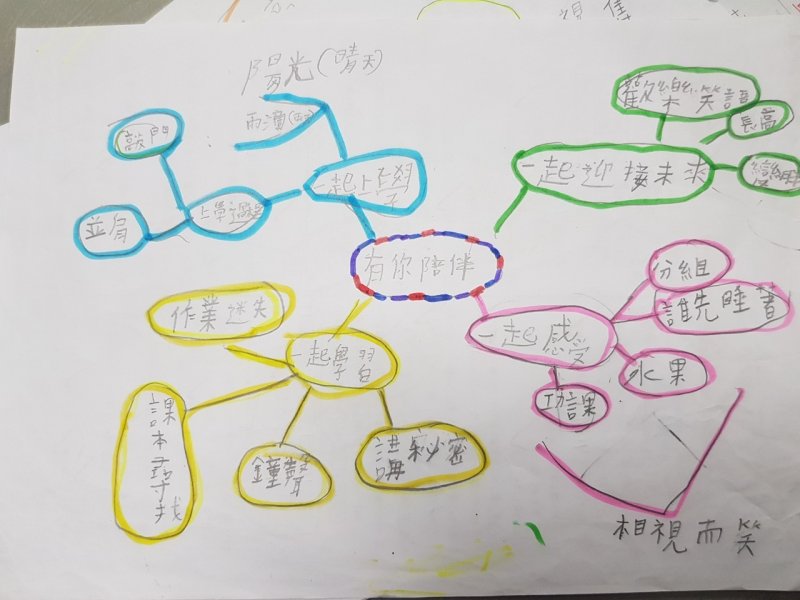 陽光(晴天)
歡樂笑語
長高
敲門
一起上學
一起迎接未來
並肩
有你陪伴
分組
誰先睡著
作業迷失
一起感受
一起學習
水果
功課
課本尋找
鐘聲
講秘密
相視而笑